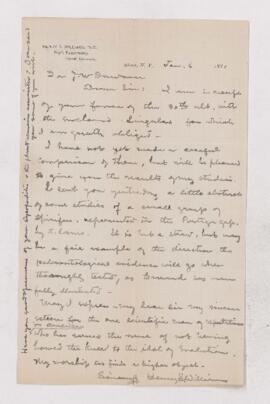 HENRY S. WILLIAMS,
Jan. 6
Dr J. W. Dawson
Dear Sir: I am in receipt
of your favor of the 30th ult. with
the enclosed Lingulas for which
I am greatly obliged.
I have not yet made a careful
comparison of them, but will be pleased
to give you the results of my studies.
I sent you yesterday a little abstract
of some studies of a small group of
Spirifers, represented in the Portage gp.
by S. laevis. It is but a sketch, but may
be a fair example of the direction the
palaeontological evidence will go when
thoroughly tested, as Ground
fully illustrated.
May I express my dear Sir my sincere
for the one scientific man of reputation
in America
Who has earned the name of not having
bowed the knee to the idol of Evolution.
My worship a higher object.
Sincerely Henry S. Williams
Have you good specimens of your
some of your